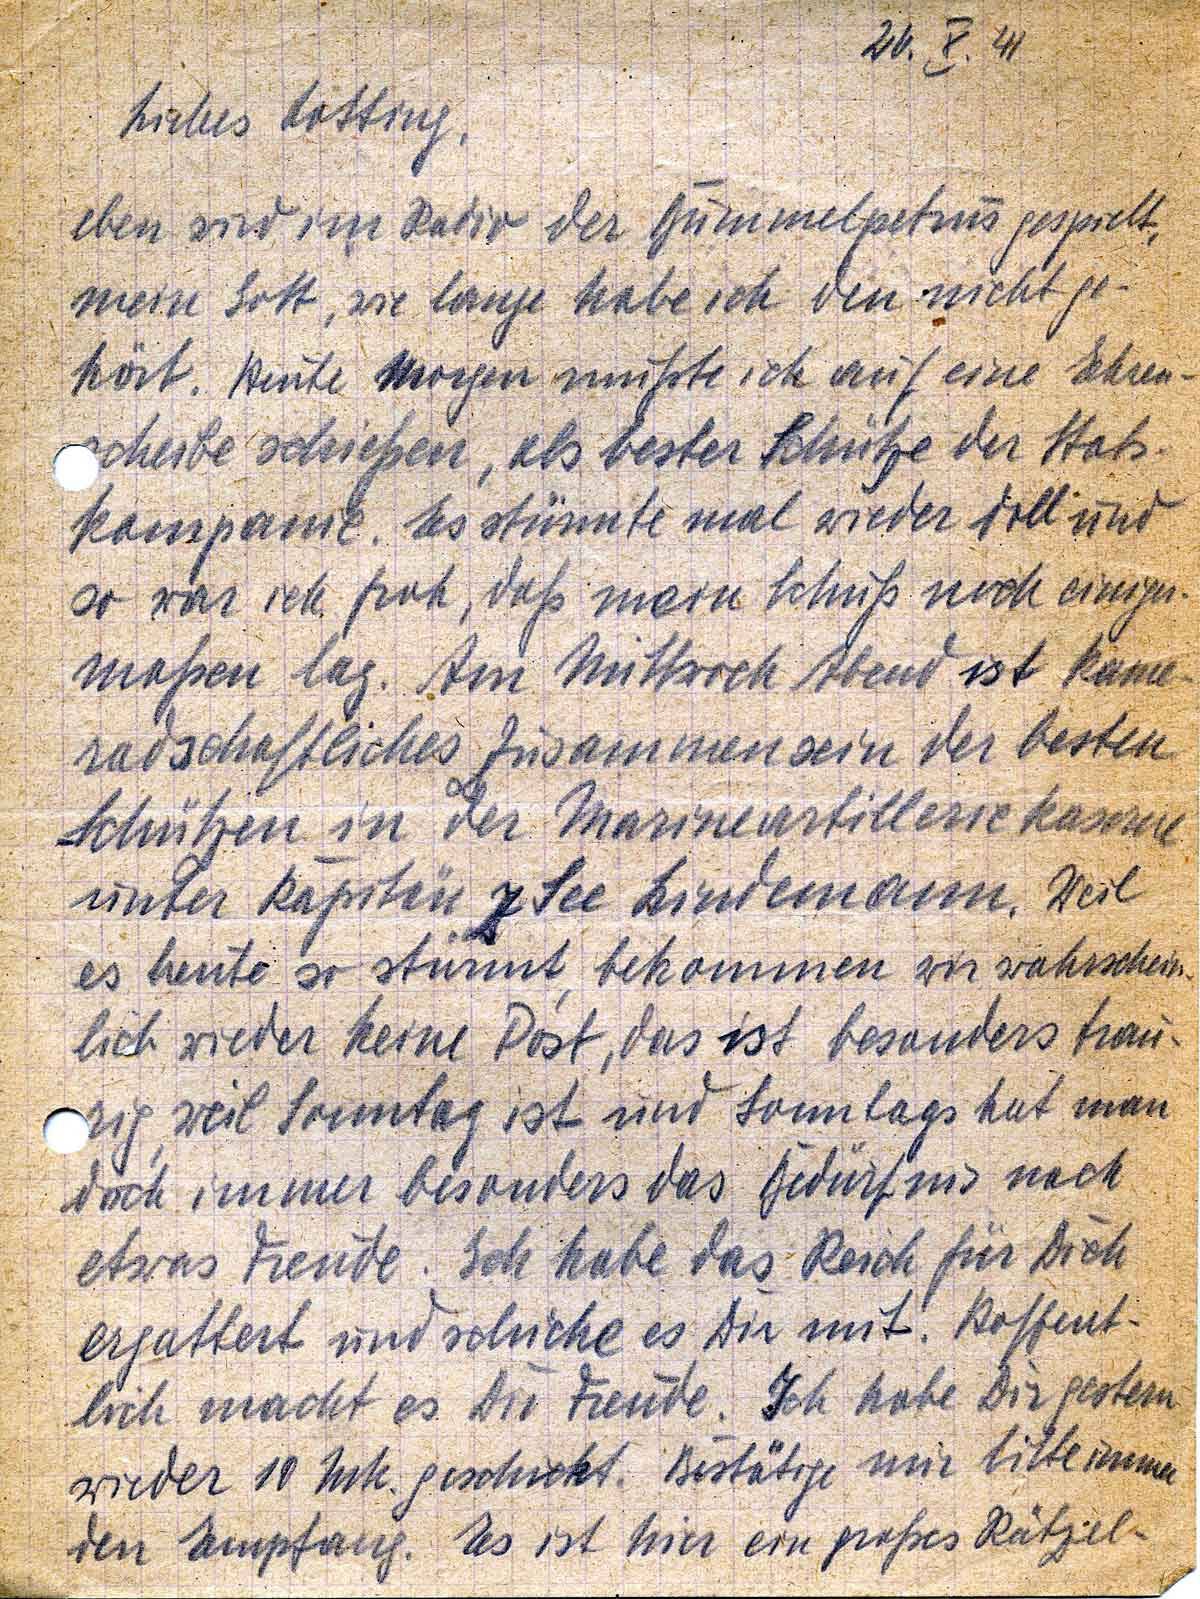 26. X. 41
Liebes Lotting,
eben wird im Radio der Bummelpetrus gespielt,
mein Gott, wie lange habe ich den nicht ge-
hört. Heute Morgen mußte ich auf eine Ehren-
scheibe schießen, als bester Schütze der Stabs-
kompanie. Es stürmte mal wieder doll und
so war ich froh, daß mein Schuß noch einiger-
maßen lag. Am Mittwoch Abend ist kame-
radschaftliches Zusammensein der besten
Schützen in der Marineartilleriekaserne
unter Kapitän z See Lindemann. Weil
es heute so stürmt, bekommen wir wahrschein-
lich wieder keine Post, das ist besonders trau-
rig, weil Sonntag ist und Sonntags hat man
doch immer besonders das Bedürfnis nach
etwas Freude. Ich habe das Reich für Dich
ergattert und schicke es Dir mit. Hoffent-
lich macht es Dir Freude. Ich habe Dir gestern
wieder 10 Mk. geschickt. Bestätige mir bitte immer
den Empfang. Es ist hier ein großes Rätzel-